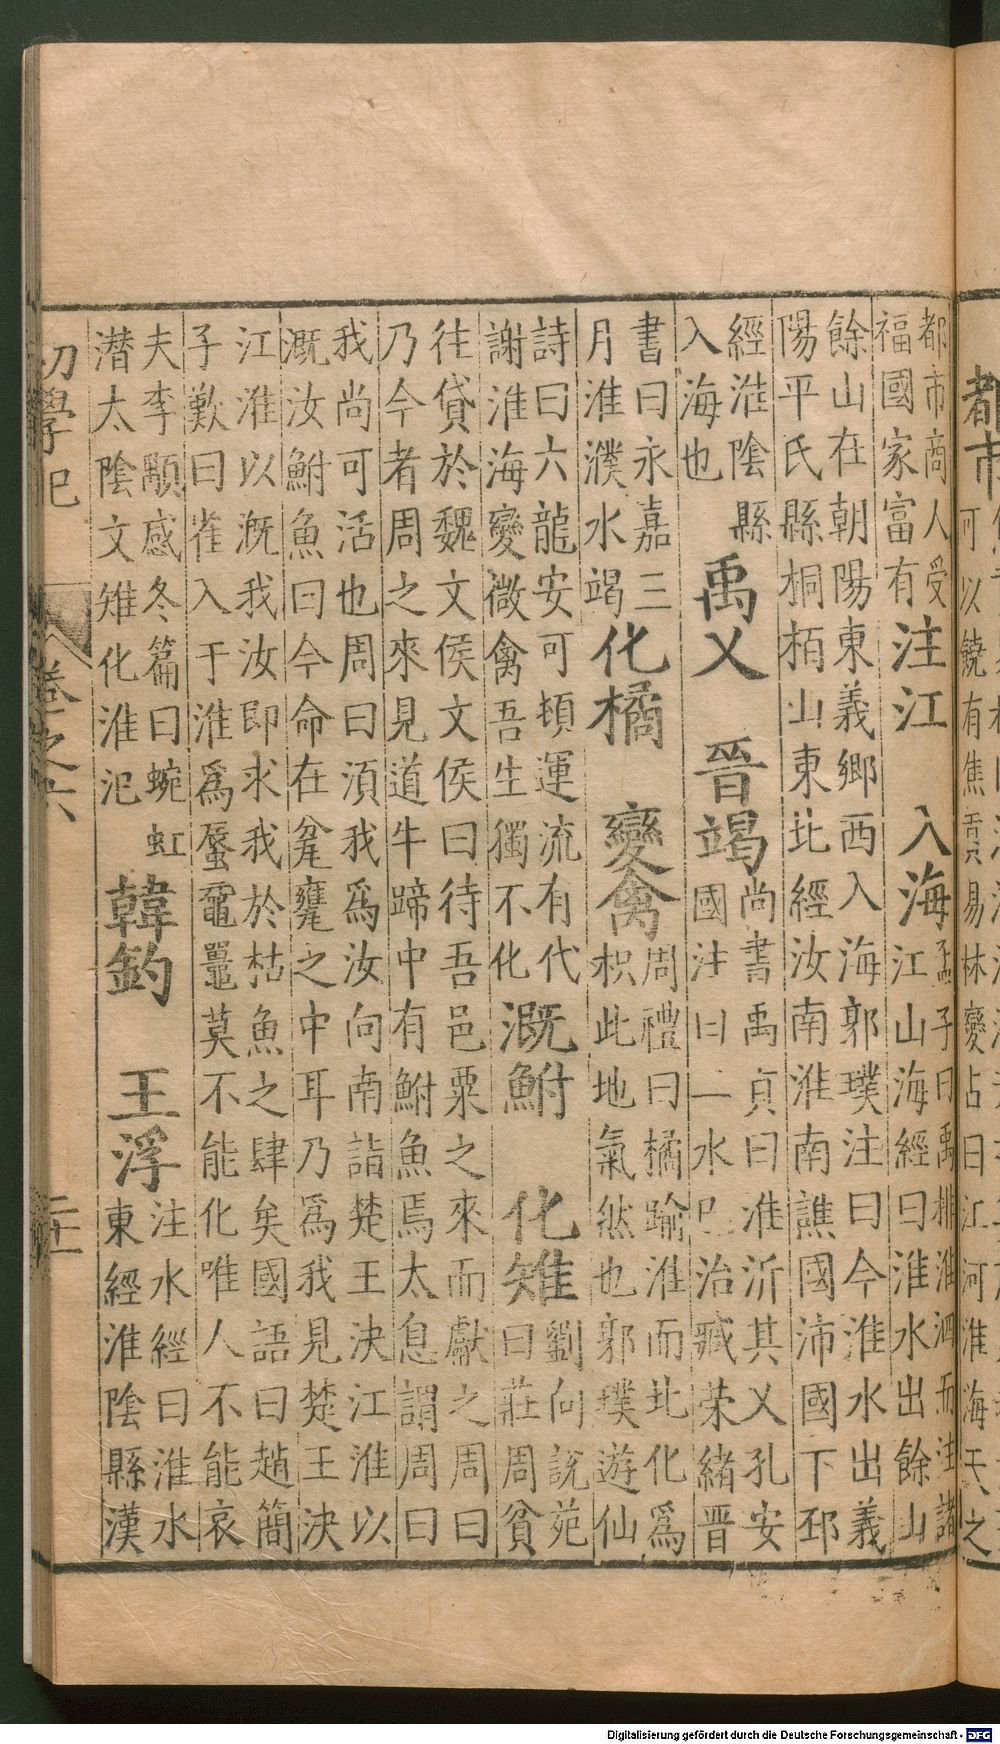 都市
可以饒有焦貢易林變占曰江河淮海天之
都市商人受
福國家富有
注江 入海
孟子曰禹排淮泗而注諸
江山海經曰淮水出餘山
餘山在朝陽東義鄉西入海郭璞注曰今淮水出義
陽平氏縣桐栢山東北經汝南淮南譙國沛國下邳
經淮陰縣
入海也
禹乂 晉竭
尚書禹貢曰淮沂其乂孔安
國注曰二水已治臧荣緒晉
書曰永嘉三
月淮濮水竭
化橘 變禽
周禮曰橘踰淮而北化爲
枳此地氣然也郭璞遊仙
詩曰六龍安可頓運流有代
謝淮海變微禽吾生獨不化
溉鮒 化雉
劉向說苑
曰莊周貧
往貸於魏文侯文侯曰待吾邑粟之來而獻之周曰
乃今者周之來見道牛蹄中有鮒魚焉太息謂周曰
我尚可活也周曰須我爲汝向南詣楚王決江淮以
溉汝鮒魚曰今命在瓫甕之中耳乃爲我見楚王決
江淮以溉我汝即求我於枯魚之肆矣國語曰趙簡
子歎曰雀入于淮爲蜃黿鼉莫不能化唯人不能哀
夫李顒感冬篇曰蜿虹
潜太陰文雉化淮汜
韓釣 王浮
注水經曰淮水
東經淮陰縣漢
初學記 卷之六 二十一
Digitalisierung gefördert durch die Deutsche Forschungsgemeinschaft - DFG